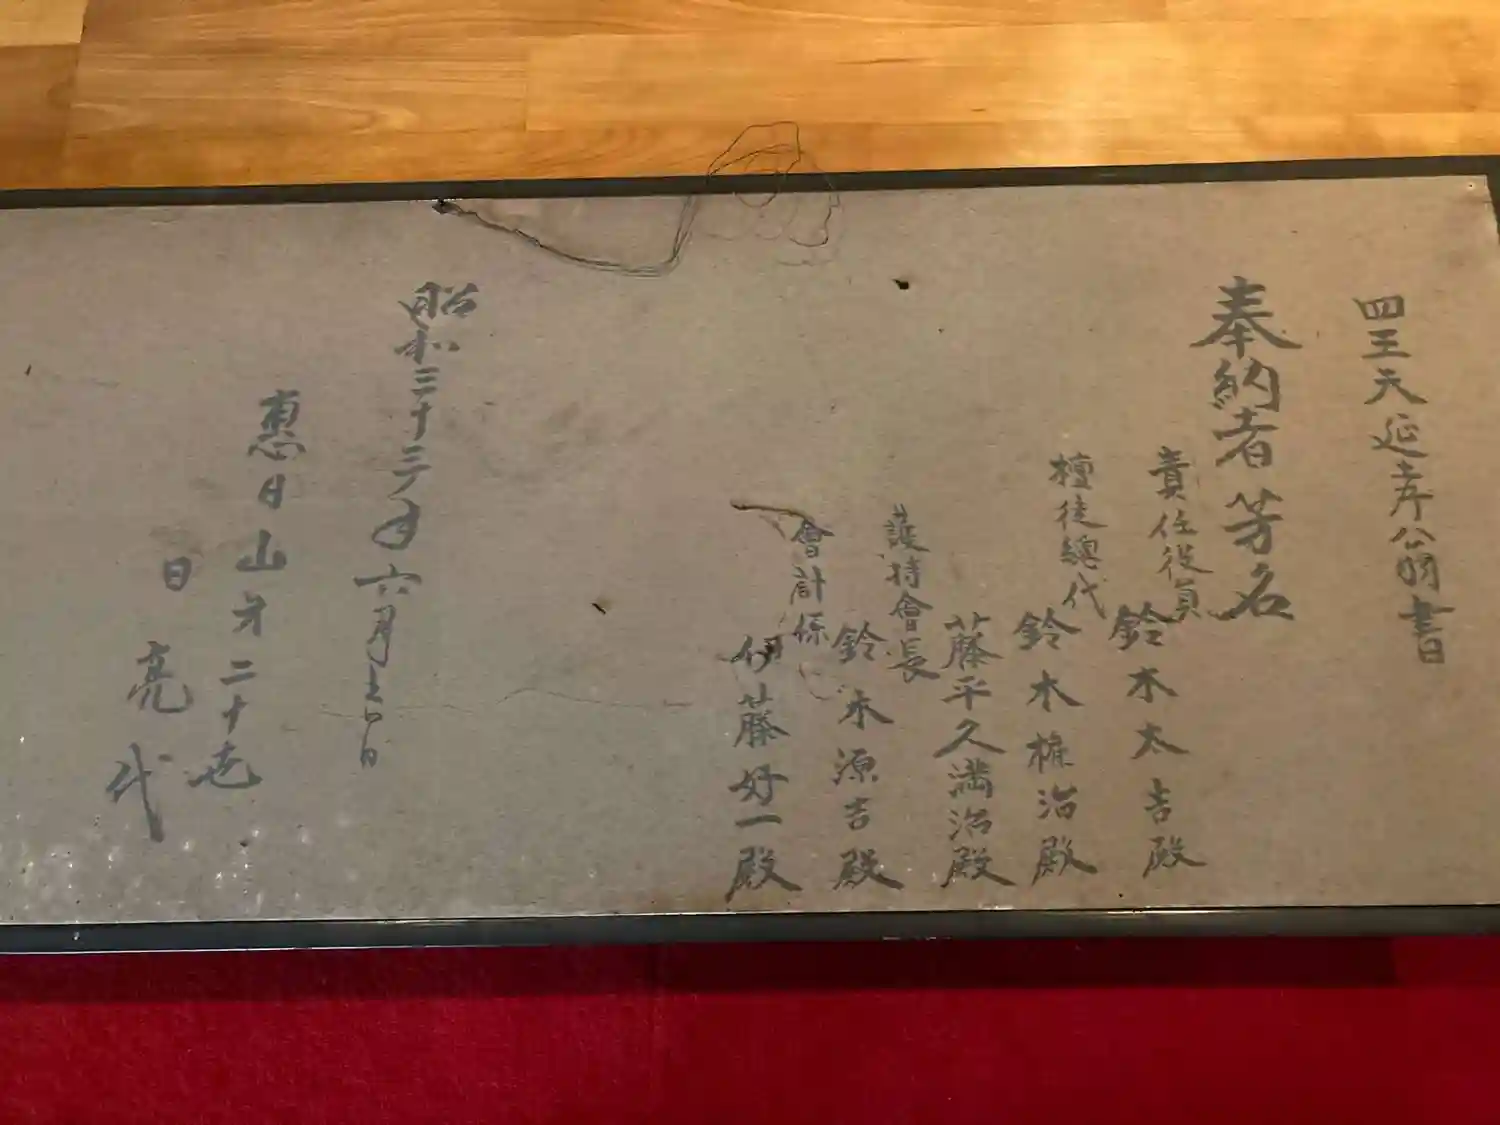 四王天延孝公閣書
奉納者芳名
責任役員
鈴木太吉殿
檀徒總代
鈴木権治殿
藤平久満治殿
護持會長
鈴木源吉殿
會計係
伊藤好一殿
昭和三十三年六月吉日
惠日山第二十七世
日亮代